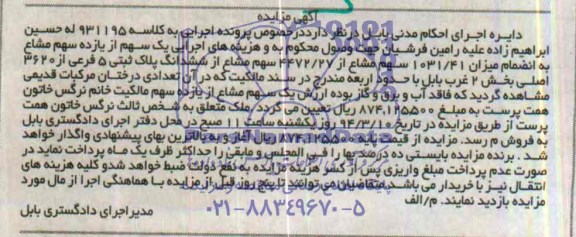 آگهی مزایده
دایره اجرای احکام مدنی بابل در نظر دارد در خصوص پرونده اجرایی به کلاسه ۹۳۱۱۹۵ له حسین
ابراهیم زاده علیه رامین فرشیان جهت وصول محکوم به و هزینه های اجرایی یک سهم از یازده سهم مشاع
به انضمام میزان ۱۰۳۱/۴۱ سهم مشاع از ۴۴۷۲/۲۷ سهم مشاع از ششدانگ پلاک ثبتی ۵ فرعی از ۳۶۲۰
اصلی بخش ۲ غرب بابل با حدود اربعه مندرج در سند مالکیت که در آن تعدادی درختان مرکبات قدیمی
مشاهده گردید که فاقد آب و برق و گاز بوده ارزش یک سهم مشاع از یازده سهم مالکیت خانم نرگس خاتون
همت پرست به مبلغ ۸۷۴,۱۲۵۵۰۰ ریال تعیین می گردد. ملک متعلق به شخص ثالث نرگس خاتون همت
پرست از طریق مزایده در تاریخ ۹۴/۳/۱۰ روز یکشنبه ساعت ۱۱ صبح در محل دفتر اجرای دادگستری بابل
به فروش م رسد. مزایده از قیمت پایه ۸۷۴,۱۲۵۵۰۰ ریال آغاز و به بالاترین بهای پیشنهادی واگذار خواهد
شد. برنده مزایده بایستی ده درصد بها را فی المجلس و مابقی را حداکثر ظرف یک ماه پرداخت نماید در
صورت عدم پرداخت مبلغ واریزی پس از کسر هزینه مزایده به نفع دولت ضبط خواهد شد و کلیه هزینه های
انتقال نیز با خریدار می باشد. متقاضیان می توانند تا پنج روز قبل از مزایده با هماهنگی اجرا از مال مورد
مزایده بازدید نمایند. م/الف
مدیر اجرای دادگستری بابل
۰۲۱-۸۸۳۴۹۶۷۰-۵